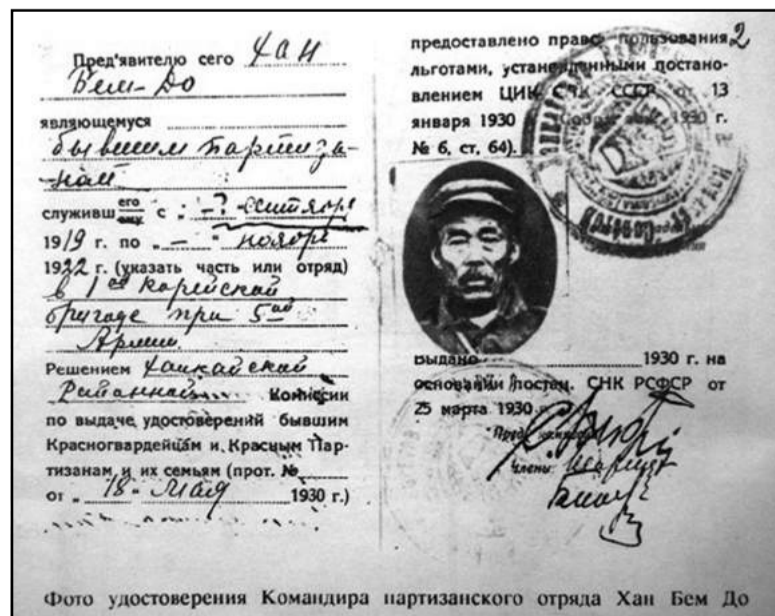 Пред'явителю сего Хан
Бем-До
являющемуся
бывшим партиза-
ном
служивш его ему с „-" сентября
1919 г. по „-" ноябрь
1922 г. (указать часть или отряд)
в 1ой Корейской
бригаде при 5ой
Армии
Решением Ханкайской
Районной Комиссии
по выдаче удостоверений бывшим
Красногвардейцам и Красным Пар-
тизанам и их семьям (прот. №
от „18" Мая 1930 г.)
2
предоставлено право пользования
льготами, установленными постано-
влением ЦИК СНК СССР от 13
января 1930 1930 г.
№ 6, ст, 64).
Выдано 1930 г. на
основании постан. СНК РСФСР от
25 марта 1930 г.
Члены:
Фото удостоверения Командира партизанского отряда Хан Бем До